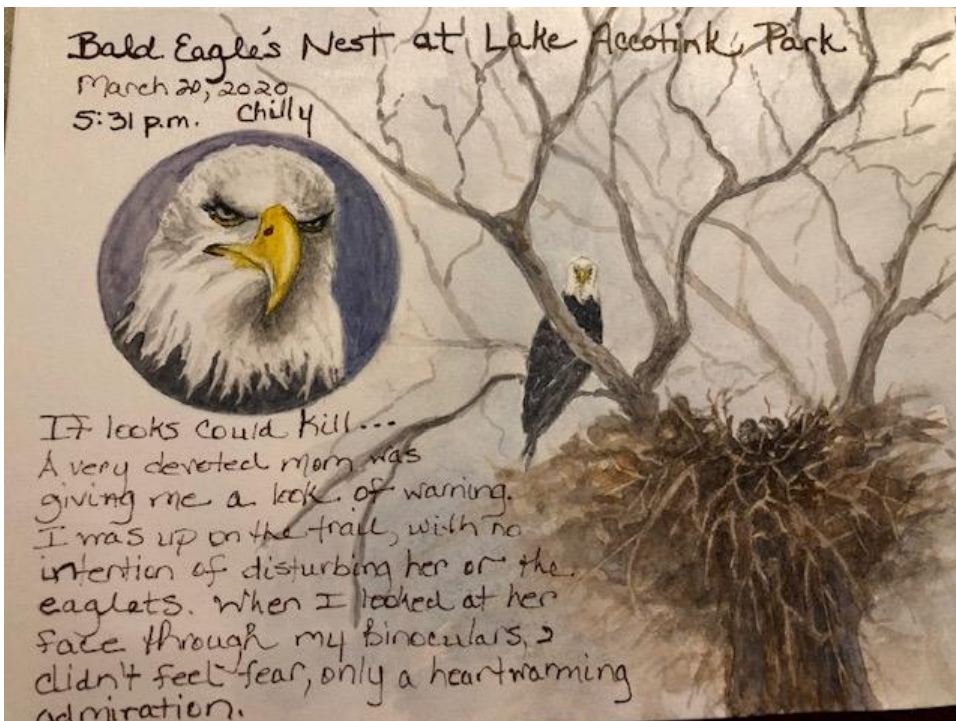 Bald Eagle's Nest at Lake Accotink Park
March 20, 2020
5:31 p.m. Chilly
If looks could kill...
A very devoted mom was
giving me a look of warning.
I was up on the trail, with no
intention of disturbing her or the
eaglets. When I looked at her
face through my binoculars, I
didn't feel fear, only a heartwarming
admiration.